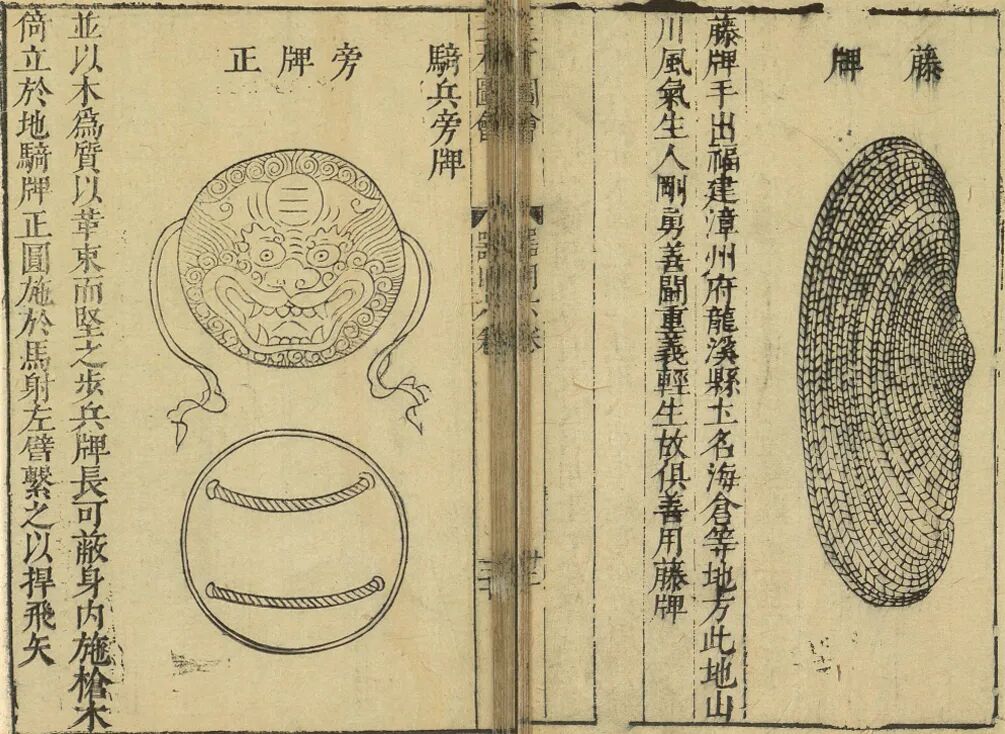 藤牌
藤牌手出福建漳州府龍溪縣土名海倉等地方此地山
川風氣生人剛勇善鬬重義輕生故俱善用藤牌
圖會
器用六卷
圖會
器用六卷
騎兵旁牌
旁牌正
並以木爲質以革束而堅之步兵牌長可蔽身内施槍木
倚立於地騎牌正圓施於馬射左臂繫之以捍飛矢